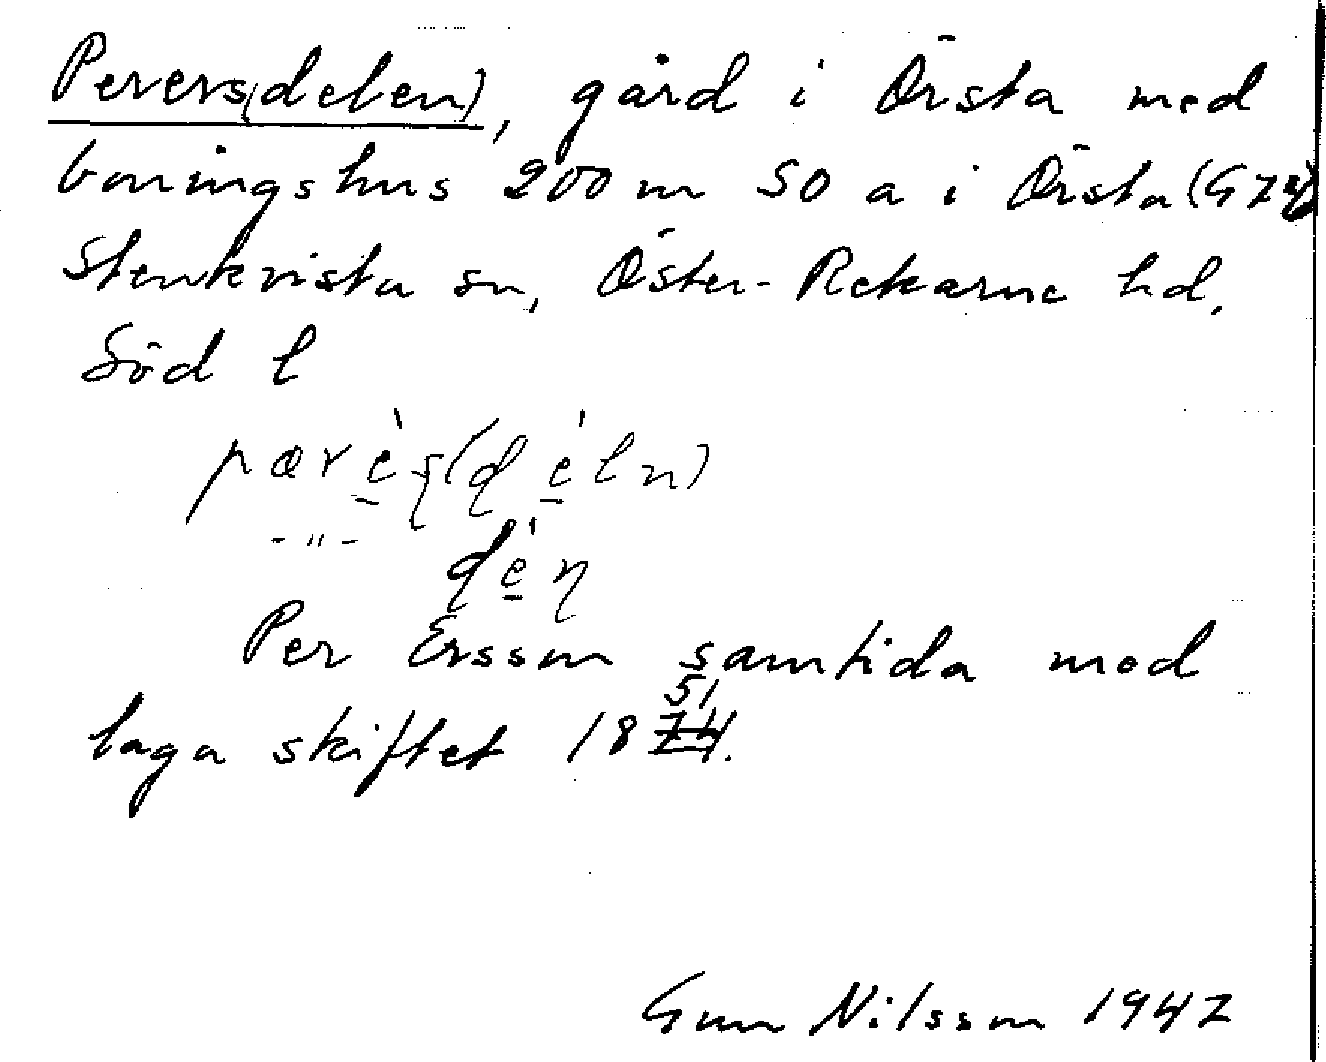 Perers(delen), gård i Örsta med
boningshus 200 m SO a i Örsta (G74)
Stenkvista sn, Öster-Rekarne hd.
Söd l
pærès(dèln)
-"- dèn
Per Ersson samtida med
laga skiftet 1851.
Gun Nilsson 1947